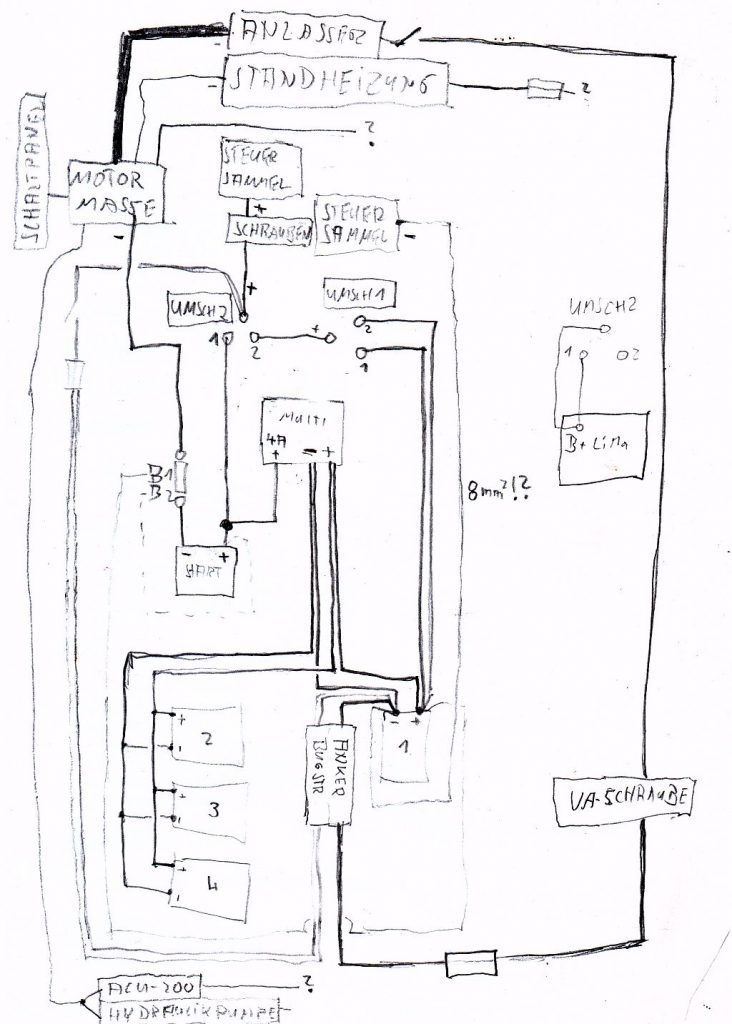 ANLASSER
-
STANDHEIZUNG
-
?
?
SCHALTPANEL
MOTOR
MASSE
-
STEUER
SAMMEL
+
SCHRAUBEN
+
STEUER
SAMMEL
-
UMSCH2
1
2
+
UMSCH1
2
1
UMSCH2
1
2
B+LiMa
MULTI
4A
+ - +
B1
B2
8mm²!?
- +
START
+
-
2
+
-
3
+
-
4
ANKER
BUGSTR
- +
1
VA-SCHRAUBE
ACU-200
?
HYDRAULIKPUMPE